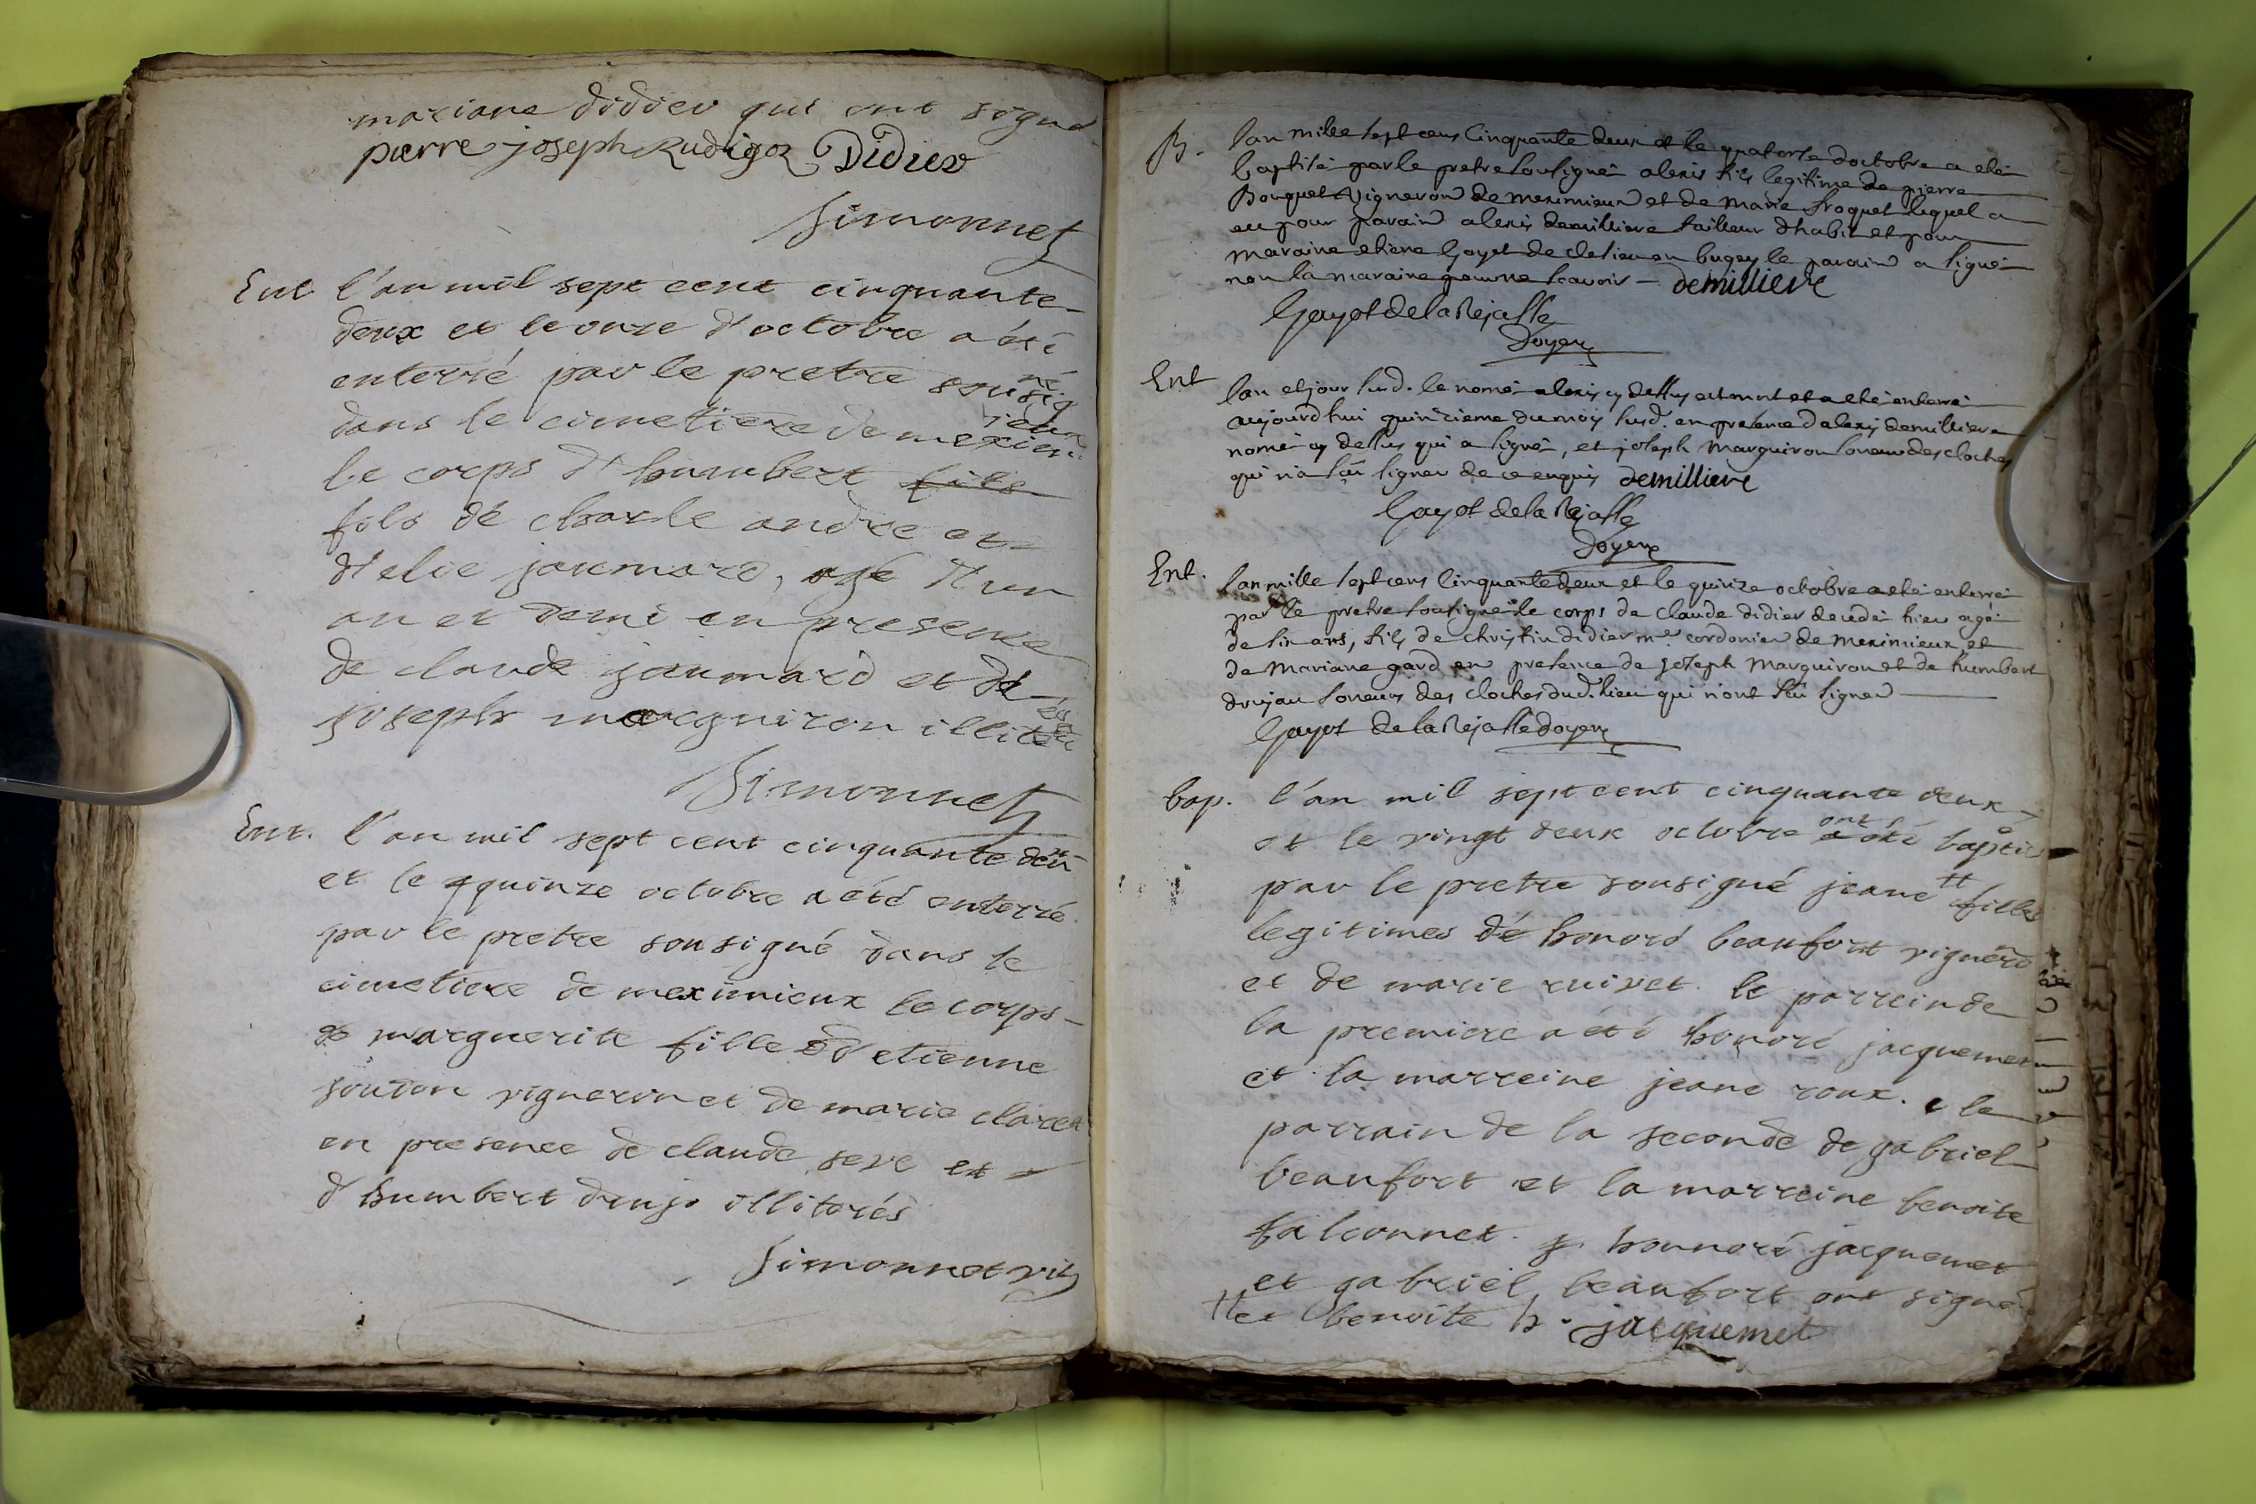 mariane didier qui ont signé
pierre joseph Rudigoz Didier
Simonnet
Ent. l'an mil sept cent cinquante
deux et le onze d'octobre a été
enterré par le pretre sousigné
dans le cimetiere de meximieux
le corps d'humbert fils
fils dé charle andre et
d'elie jaumard, agé d'un
an et demi en presence
de claude jaumard et de
joseph marguiron illiterés
Simonnet
Ent. l'an mil sept cent cinquante deux
et le quinze octobre a été enterré
par le pretre sousigné dans le
cimetiere de meximieux le corps
de marguerite fille d'etienne
vigneron et de marie claret
en presence de claude seve et
d'humbert drujo illiterés
Simonnet vic
B. l'an mille sept cens Cinquante deux et le quatorse d'octobre a eté
baptisé par le pretre sousigné alexis fils legitime de pierre
Bouquet vigneron de meximieux et de Marie froquet lequel a
eu pour parain alexis demilliere tailleur d'habit et pour
maraine etiene Gayot de en bugey le parain a signé
non la maraine pour ne scavoir - demilliere
Gayot de la Rejasse
Doyen
Ent l'an et jour susd. le nomé alexis cy dessus est mort et a eté enterré
aujourd'hui quinzieme du mois susd. en présence d'alexis demilliere
nomé cy dessus qui a signé, et joseph Marguiron soneur des cloches
qui n'a sçu signer de ce enquis demilliere
Gayot de la Rejasse
Doyen
Ent. l'an mille sept cens Cinquante deux et le quinze octobre a eté enterré
par le pretre sousigné le corps de claude didier decedé hier agé
de six ans, fils de christin didier me cordonier de meximieux et
de Mariane gard en presence de joseph Marguiron et de humbert
drujau soneurs des cloches dud. lieu qui n'ont sçu signer
Gayot de la Rejasse doyen
bap. l'an mil sept cent cinquante deux
et le vingt deux octobre a ont été baptisé
par le pretre sousigné jeane tt filles
legitimes dé honoré beaufort vigneron
et de marie ruivet. le parrein de
la premiere a été honoré jacquemet
et la marreine jeane roux. le
parrain de la seconde de gabriel
beaufort et la marreine benoite
falconnet. honnoré jacquemet
et gabriel beaufort ont signé
tt et benoite h. jacquemet